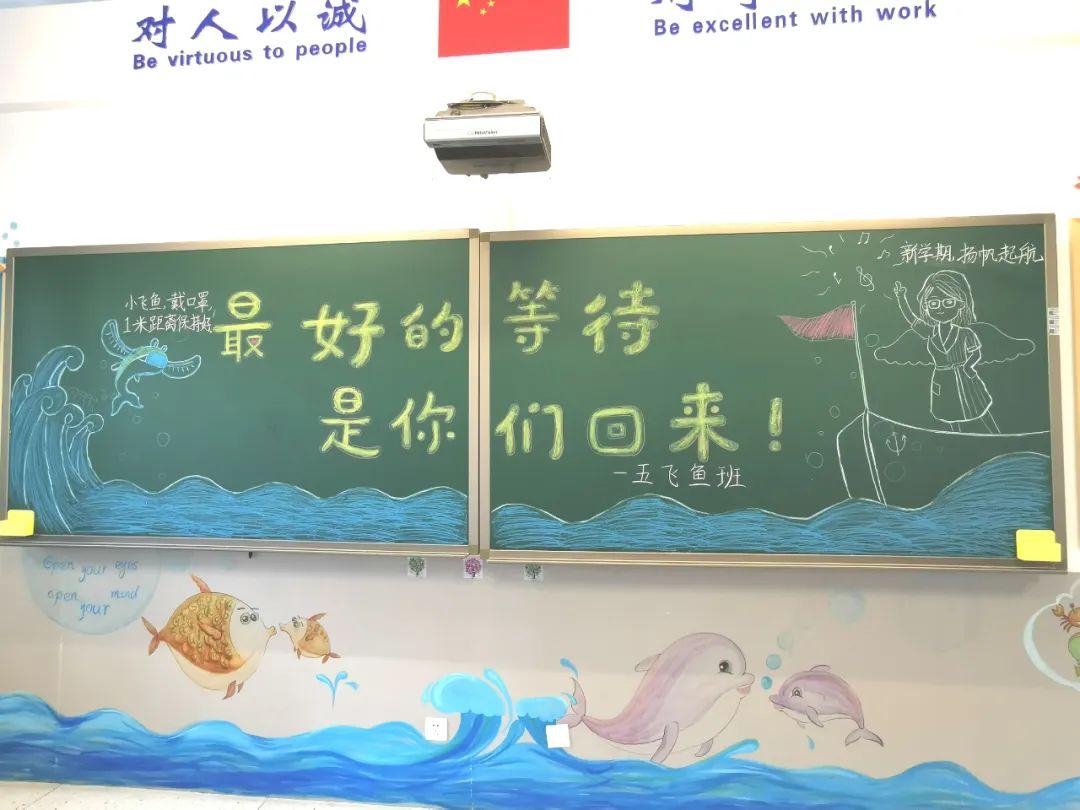 对人以诚
Be virtuous to people
Be excellent with work
小飞鱼,戴口罩,
1米距离保持好
最好的等待
是你们回来!
一五飞鱼班
新学期,扬帆起航
Open your eyes
open your mind